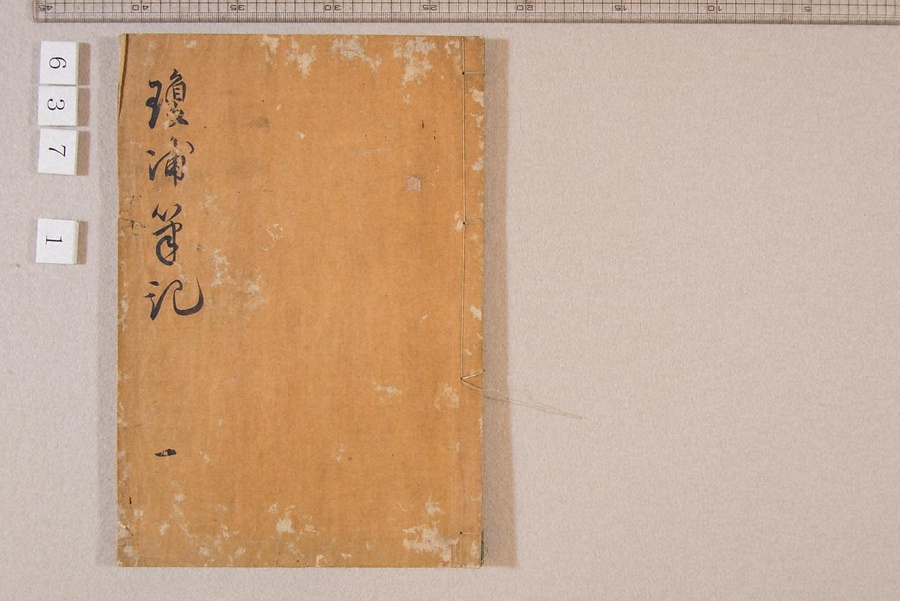 瓊浦筆記
一
6
3
7
1
45 40 35 30 25 20 15 10 5